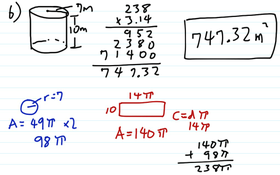 6)
7m
10m
238
x 3.14
952
2380
71400
747.32
747.32 m²
r=7
A = 49π x2
98π
14π
10
A = 140π
C = dπ
14π
140π
+ 98π
238π